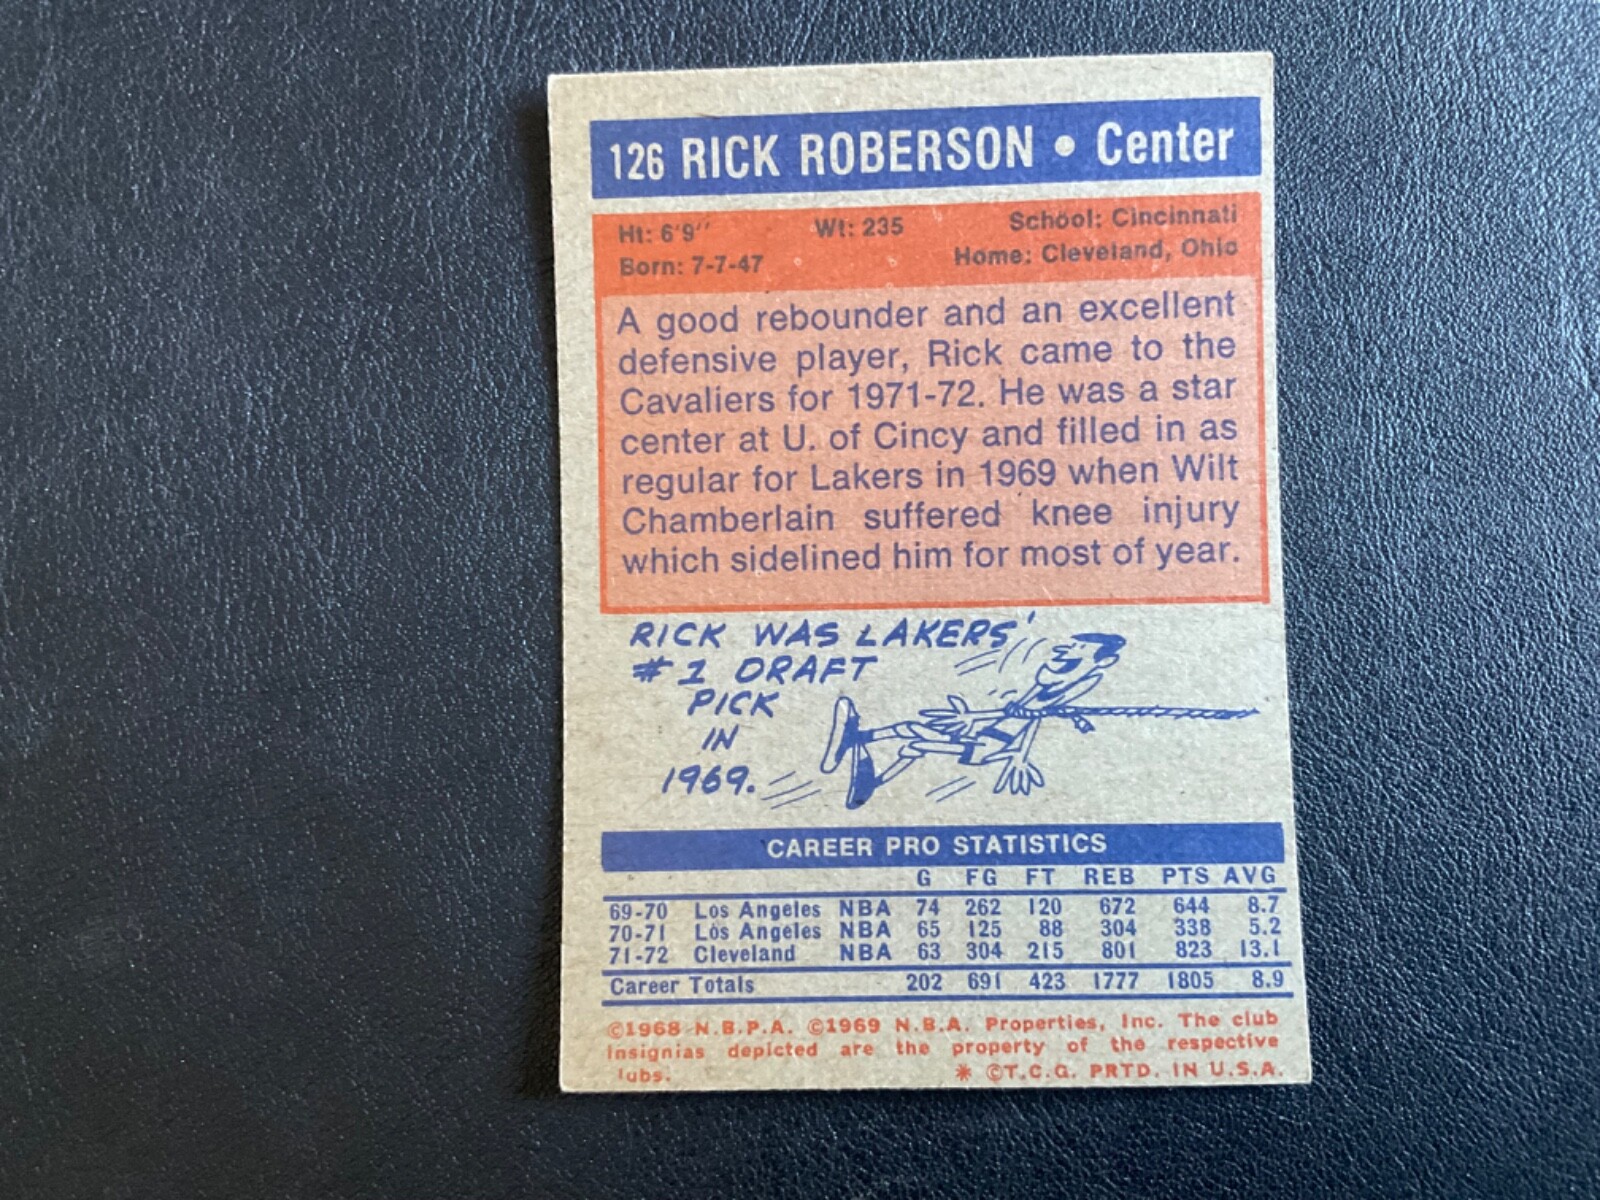 126 RICK ROBERSON • Center
Ht: 6'9'' Wt: 235 School: Cincinnati
Born: 7-7-47 Home: Cleveland, Ohio
A good rebounder and an excellent
defensive player, Rick came to the
Cavaliers for 1971-72. He was a star
center at U. of Cincy and filled in as
regular for Lakers in 1969 when Wilt
Chamberlain suffered knee injury
which sidelined him for most of year.
RICK WAS LAKERS'
#1 DRAFT
PICK
IN
1969.
CAREER PRO STATISTICS
G FG FT REB PTS AVG
69-70 Los Angeles NBA 74 262 120 672 644 8.7
70-71 Los Angeles NBA 65 125 88 304 338 5.2
71-72 Cleveland NBA 63 304 215 801 823 13.1
Career Totals 202 691 423 1777 1805 8.9
©1968 N.B.P.A. ©1969 N.B.A. Properties, Inc. The club
insignias depicted are the property of the respective
lubs. * ©T.C.G. PRTD. IN U.S.A.